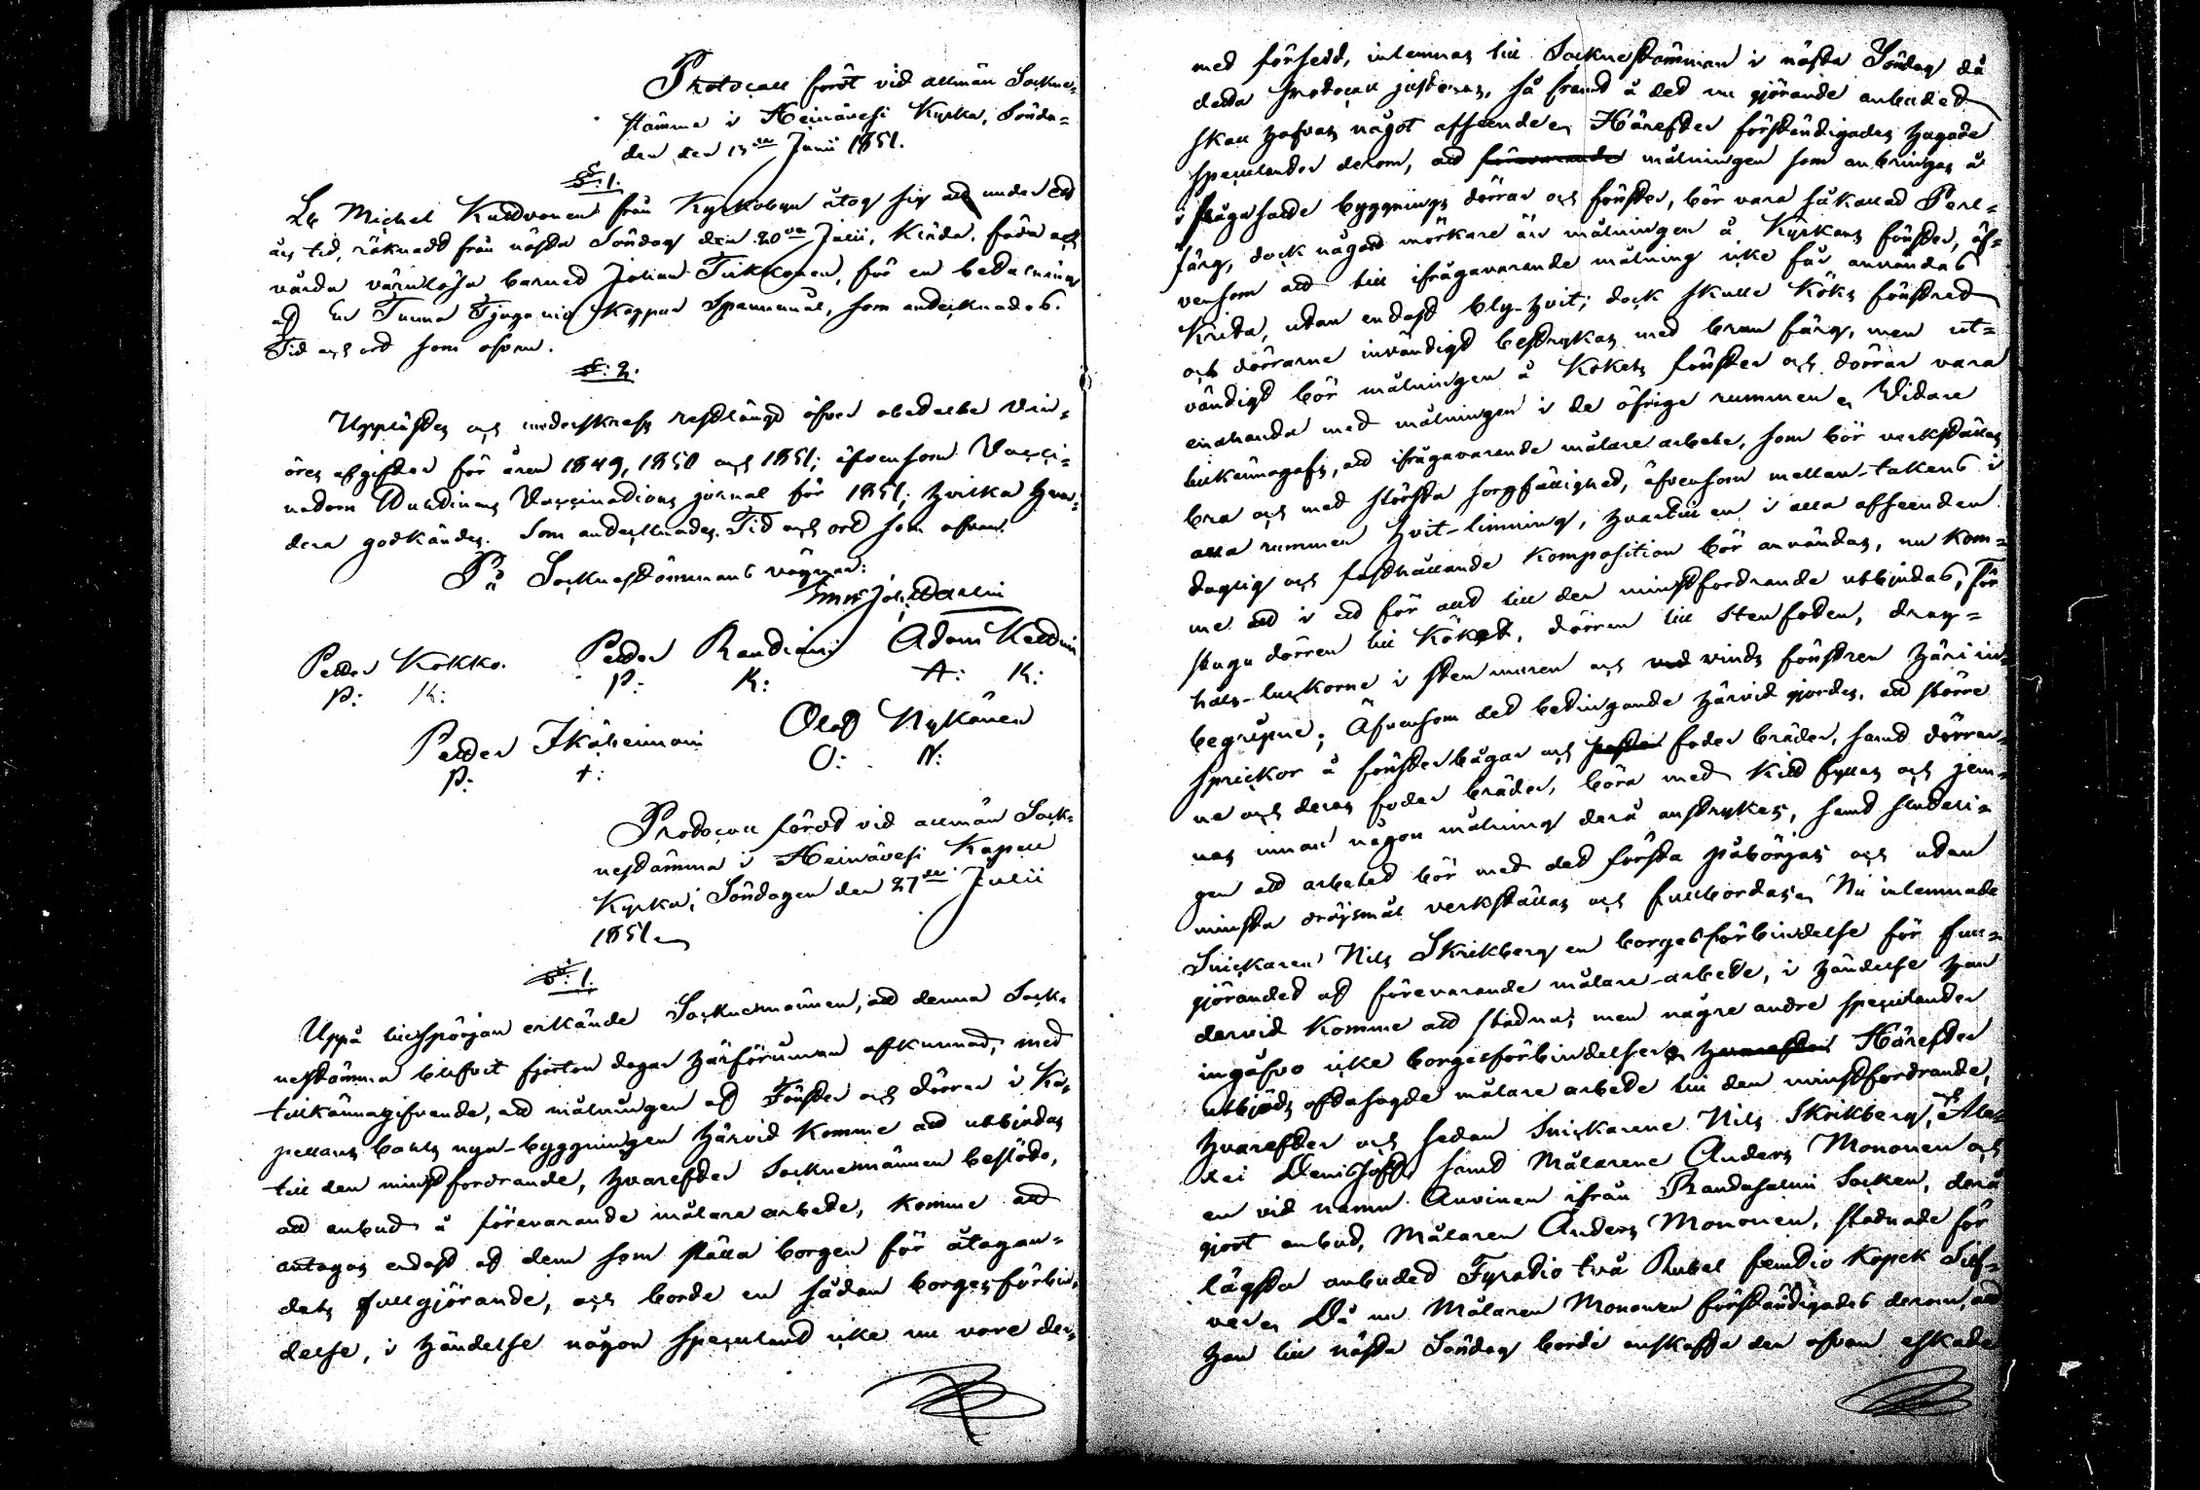 Protocoll fördt vid allmän Sockne-
stämma i Heinävesi Kyrka, Sönda-
den den 13de Julii 1851.
§: 1.
Lb Michel Kuldvonen från Kyrkobyn åtog sig att under ett
års tid, räknadt från nästa Söndag den 20de Julii, kläda, föda och
vårda värnlösa barnet Johan Tirkkonen, för en betalning
af En Tunna Tjugo nio Kappar Spannmål, som antecknades.
Tid och ort som ofvan.
§: 2.
Upplästes och underskrefs restlängd öfver obetalte
öres afgifter för åren 1849, 1850 och 1851; äfvensom Vacci-
natorn Vaccinations jornal för 1851; hvilka hvar-
dera godkändes. Som antecknades. Tid och ort som ofvan.
På Socknestämmans vägnar:
Petter Kokko. Petter Randiain Adam
P: K: P: R: A: K:
Petter Ikäheimoin Olof Nykänen
P: I: O: N:
Protocoll fördt vid allmän Sock-
nestämma i Heinävesi Kapell
Kyrka, Söndagen den 27de Julii
1851.
§: 1.
Uppå tillspörjan erkände Socknemännen, att denna Sock-
nestämma blifvit fjorton dagar härförinnan afkunnad, med
tillkännagifvande, att målningen af Fönster och dörrar i Ka-
pellans bohls nya byggningen härvid komme att utbjudas
till den minstfordrande, hvarefter Socknemännen beslöto,
att anbud å förevarande målare arbete, komme att
antagas endast af dem som ställa borgen för åtagan-
dets fullgjörande, och borde en sådan borgesförbin-
delse, i händelse någon speculant icke nu vore der-
med försedd, inlemnas till Socknestämman i nästa Söndag då
detta Protocoll justeras, så framt å det nu gjörande anbudet
skall hafvas något afseende. Härefter förständigades hugade
speculanter derom, att förevarande målningen som anbringas å
i fråga satte byggnings dörrar och fönster, bör vara så kallad Perl-
färg, dock något mörkare än målningen å Kyrkans fönster, äf-
vensom att till ifrågavarande målning icke får användas
Krita, utan endast bly-hvit; dock skulle Köks fönstret
och dörrarne invändigt bestrykas med brun färg, men ut-
vändigt bör målningen å Kökets fönster och dörrar vara
enahanda med målningen i de öfrige rummen. Vidare
tillkännagafs, att ifrågavarande målare arbete, som bör verkställas
bra och med största sorgfällighet, äfvensom mellan-takens i
alla rummen hvit-limning, hvartill en i alla afseenden
duglig och fasthållande Komposition bör användas, nu kom-
me att i ett för allt till den minstfordrande utbjudas, För
stugu dörren till Köket, dörren till Stenfoten, drag-
håls-luckorne i stenmuren och vinds fönstren häri in-
begripne; Äfvensom det betingande härvid gjordes, att större
sprickor å fönsterbågar och foder bräder, samt dörrar-
ne och deras foder bräder, böra med Kitt fyllas och jem-
nas innan någon målning derå anstrykes, samt sluteli-
gen att arbetet bör med det första påbörjas och utan
minsta dröjsmål verkställas och fullbordas. Nu inlemnade
Snickaren Nils Skrikberg en borgesförbindelse för full-
gjörandet af förevarande målare-arbete, i händelse han
dervid Komme att stadna; men någre andre speculanter
ingåfvo icke borgesförbindelser. hvarefter Härefter
utbjöds oftasagde målare arbete till den minstfordrande,
hvarefter och sedan Snickarene Nils Skrikberg, Alex
samt Målarene Anders Mononen och
en vid namn Auvinen ifrån Randasalmi Socken, derå
gjort anbud, Målaren Anders Mononen, stadnade för
lägsta anbudet Fyratio två Rubel femtio Kopek Silf-
ver. Då nu Målaren Mononen förständigades derom, att
han till nästa Söndag borde anskaffa den ofvan eskade